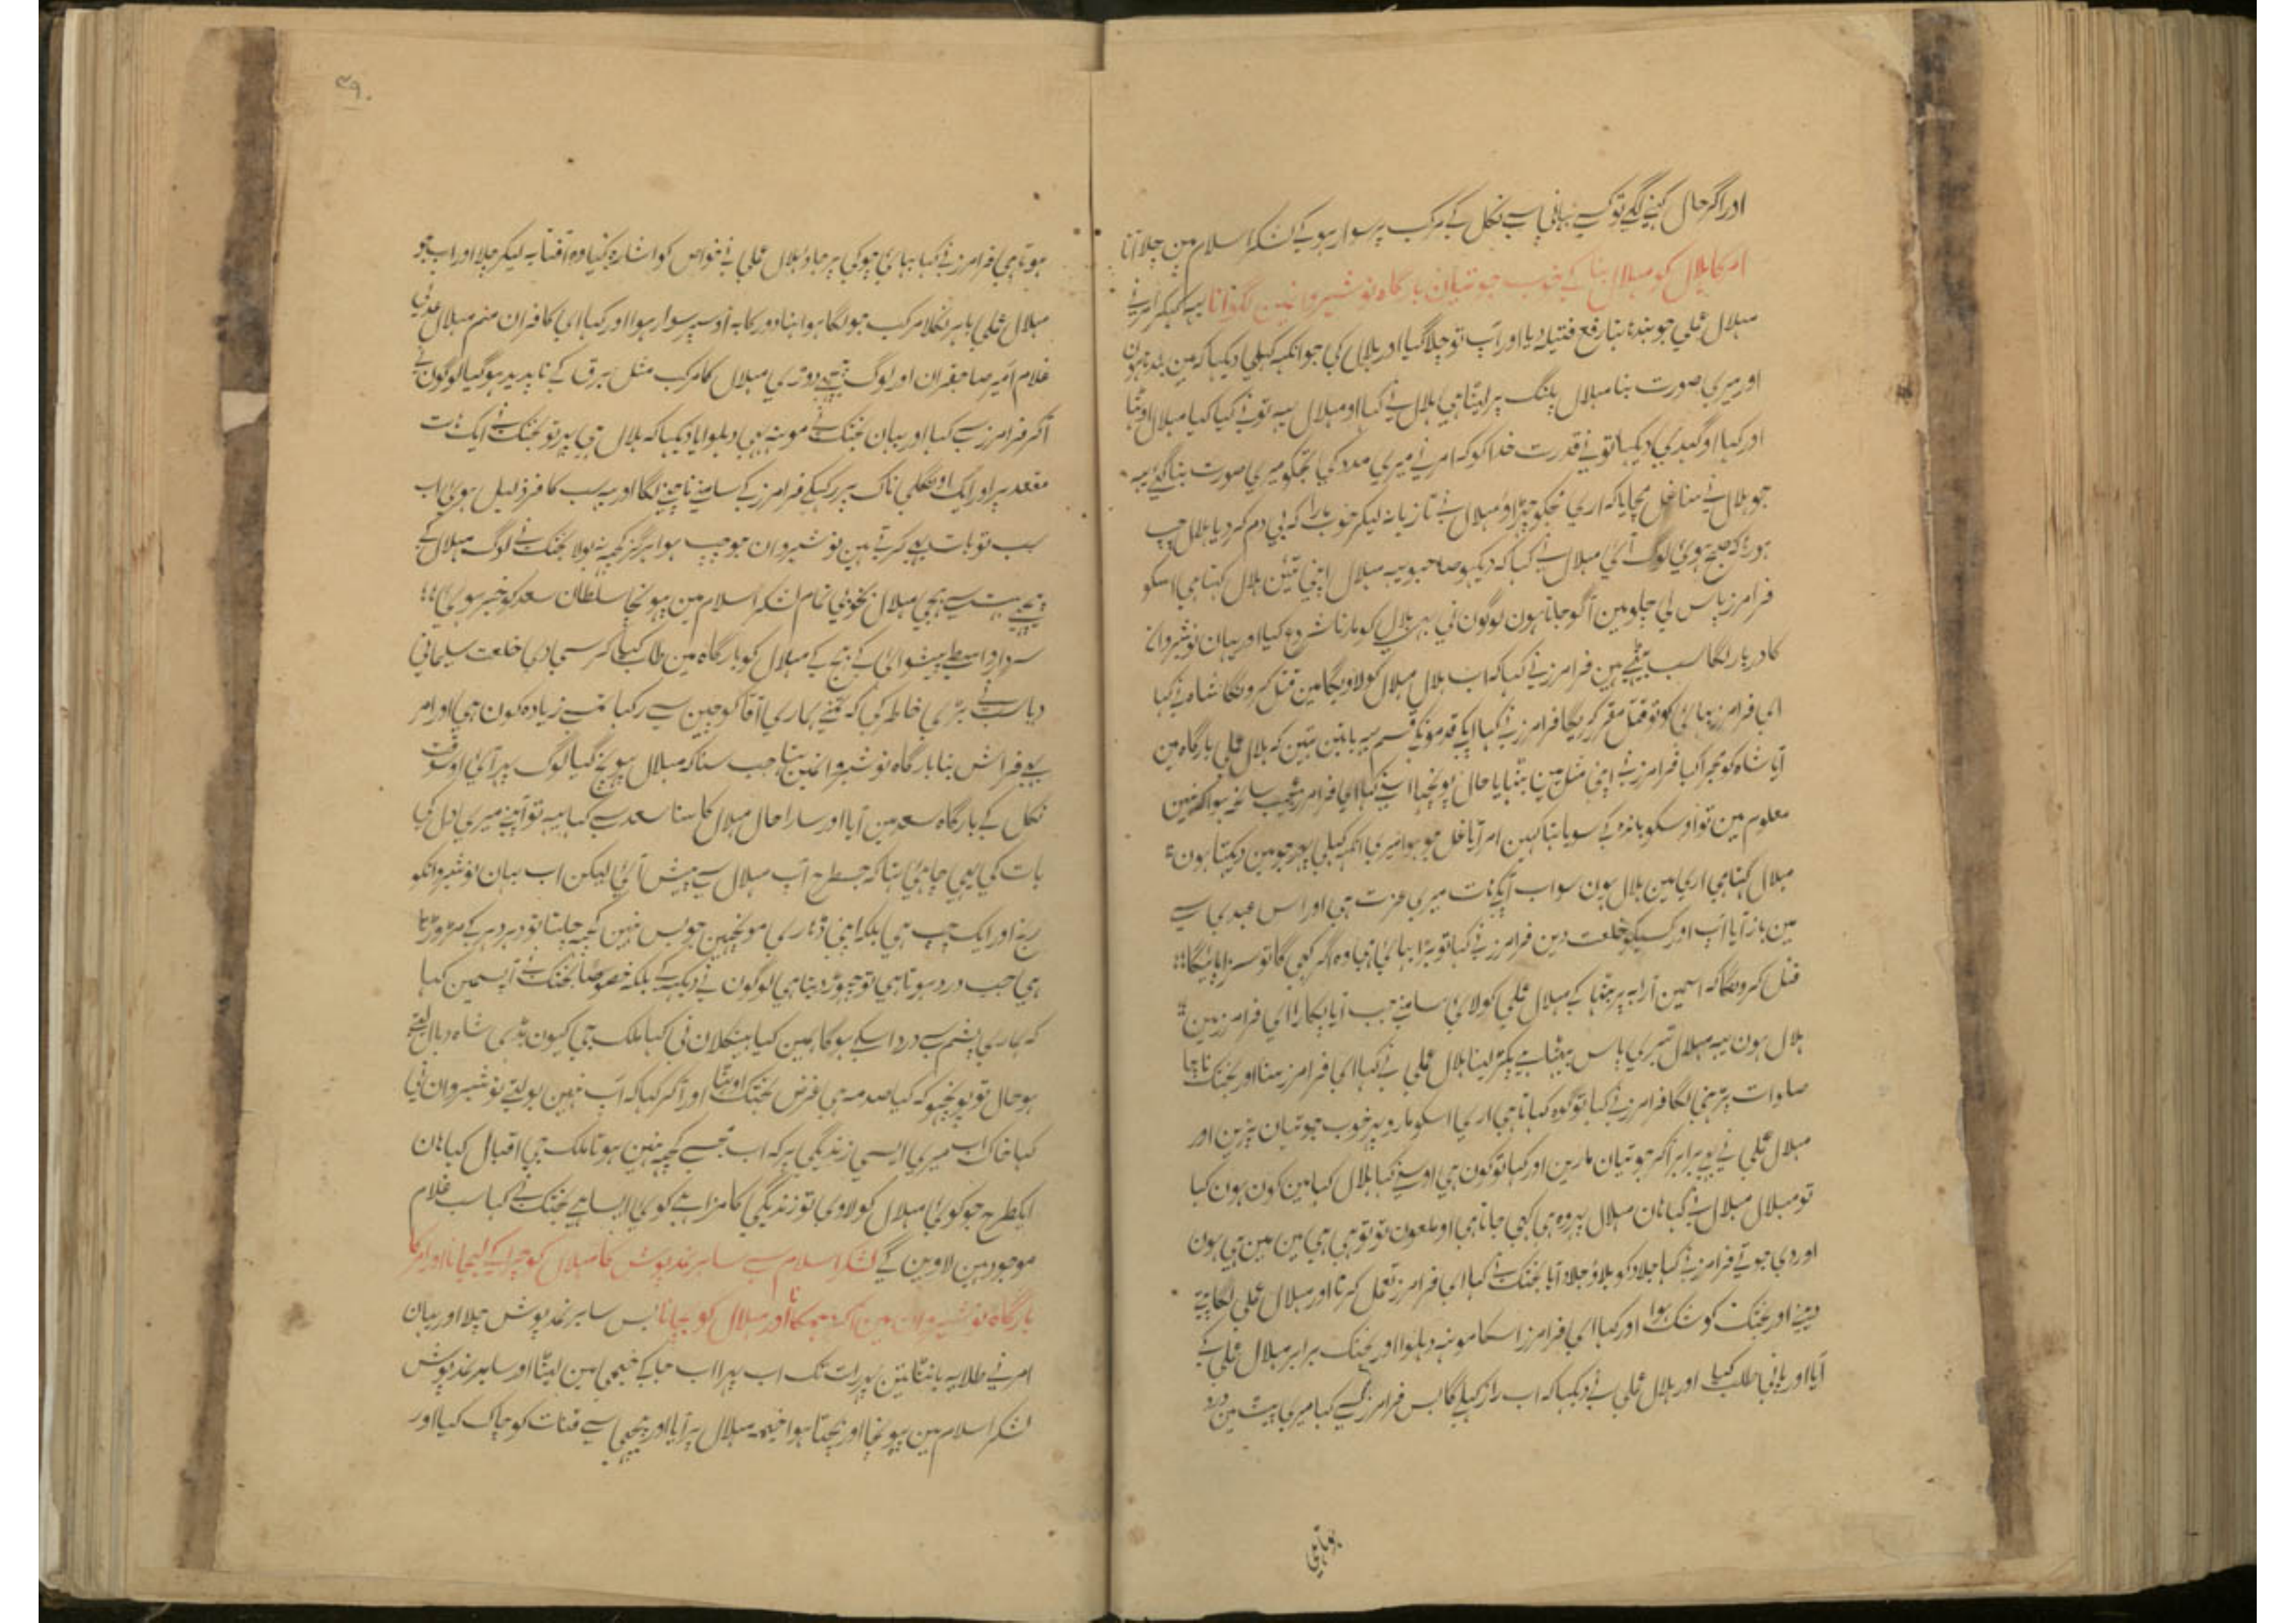 اور اگر حال کہنے لگے تو کسے بہانی سے نکل کے مرکب پر سوار ہو کے لشکر اسلام مین چلا آنا
امر کا ہلال کو مہلال بنا کے خوب جوتیان بارگاہ نوشیروانمین لگوانا یہہ کہکر امرنے
مہلال علی جو بندہا تہا رفع فتیلہ دیا اور آپ تو چلا گیا اور ہلال کی جو انکہہ کہلی دیکہا کہ مین بندہا ہون
اور میری صورت بنا مہلال پلنگ پر لیٹا ہی ہلال نے کہا او مہلال یہہ تونے کیا کیا مہلال اوٹہا
اور کہا او گیدی دیکہا تو نے قدرت خدا کو کہ امر نے میری مدد کی تجکو میری صورت بنا گئے یہہ
جو ہلال نے سنا غل مچایا کہ اری مجکو چہڑاؤ مہلال نے تازیانہ لیکر خوب مارا کہ بی دم کر دیا ہلال چپ
ہو رہا کہ صبح ہوئی لوگ آئی مہلال نے کہا کہ دیکہو صاحبو یہہ مہلال اپنی تئین ہلال کہتا ہی اسکو
فرامرز پاس لی چلو مین آگو جاتا ہون لوگون نی پہر ہلال کو مارنا شروع کیا اور یہان نوشیروانکا
کا دربار لگا سب بیٹہے ہین فرامرز نے کہا کہ اب ہلال مہلال کو لاویگا مین قتل کرونگا شاہ نے کہا
ای فرامرز بہائی کو تو قتل مقرر کریگا فرامرز نے کہا آپکے قدمونکی قسم یہہ باتین تہین کہ ہلال علی بارگاہ مین
آیا شاہ کو مجرا کیا فرامرز نے اپنی مثل مین بٹہایا حال پونچہا اسنے کہا ای فرامرز عجب سانحہ ہوا کہ نہین
معلوم مین تو اوسکو باندہ کے سویا تہا کہین امر آیا غل جو ہوا میری انکہہ کہلی پہر جو مین دیکہتا ہون
مہلال کہتا ہی اری مین ہلال ہون سو اب آپکے ہات میری عزت ہی اور اس عہدی سے
مین باز آیا آپ اور کسیکو خلعت دین فرامرز نے کہا تو بڑا بہائی تہا وہ اگر کہی گا تو سزا پائیگا
قتل کرونگا کہ اسمین ارابہ پر بیٹہا کے مہلال علی کو لائی سامنے جب آیا پکارا ای فرامرز مین
ہلال ہون یہہ مہلال تیری پاس بیٹہا ہے پکڑ لینا ہلال علی نے کہا ای فرامرز سنا اور بختک ناچا
صلوات پڑہنی لگا فرامرز نے کہا تو گوہ کہاتا ہی اری اسکو مارو پہر خوب جوتیان پڑین اور
مہلال علی نے بہی برابر آکر جوتیان مارین اور کہا تو کون ہی اوسنے کہا ہلال کہا مین کون ہون کہا
تو مہلال مہلال نے کہا ہان مہلال پہر وہ ہی کہی جاتا ہی او ملعون تو تو ہی ہی مین مین ہی ہون
اور دی جوتے فرامرز نے کہا جلاد کو بلاؤ جلاد آیا بختک نے کہا ای فرامرز تحمل کرنا اور مہلال علی لگا پتے
دینے اور بختک کو شک ہوا اور کہا ای فرامرز اسکا مونہہ دہلوا اور بختک برابر مہلال علی کے
آیا اور پانی طلب کیا اور ہلال علی نے دیکہا کہ اب راز کہلیگا بس فرامرز سے کہا میری پیٹ مین درد
ہوتا ہی
۳۹۰
ہوتا ہی فرامرز نے کہا بہائی چوکی پر جاؤ ہلال علی نے خواص کو اشارہ کیا وہ آفتابہ لیکر چلا اور اب جو
مہلال علی باہر نکلا مرکب جو لگا ہوا تہا دور کابہ اوسپر سوار ہوا اور کہا ای کافران منم مہلال علی
غلام امیر صاحبقران اور لوگ پیچہے دوڑی مہلال کا مرکب مثل برق کے ناپدید ہو گیا لوگون نے
آکر فرامرز سے کہا اور یہان بختک نے مونہہ بہی دہلوایا دیکہا کہ ہلال ہی پہر تو بختک نے ایک ہات
مقعد پر اور ایک اونگلی ناک پر رکہکے فرامرز کے سامنے ناچنے لگا اور یہہ سب کافر ذلیل ہوئی اب
سب تو بات بہی کرتے ہین نوشیروان جو چپ ہوا ہرگز کچہہ نہ بولا بختک نے لوگ مہلال کے
پیچہے بہت سے بہیجے مہلال بخوبی تمام لشکر اسلام مین پہونچا سلطان سعد کو خبر ہوئی
سردار واسطے پیشوائی کے بہیج کے مہلال کو بارگاہ مین طلب کیا کرسی دی خلعت سلیمانی
دیا سب نے بڑی خاطر کی کہ تمنے ہماری آقا کو چین سے رکہا تمسے زیادہ کون ہی اور امر
بہی فراش بنا بارگاہ نوشیروانمین تہا جب سنا کہ مہلال پہونچ گیا لوگ پہر آئی اوسوقت
نکل کے بارگاہ سعد مین آیا اور سارا حال مہلال کا سنا سعد سے کہا یہہ تو آپنے میری دل کی
بات کی یہی چاہئی تہا کہ جسطرح آپ مہلال سے پیش آئی لیکن اب یہان نوشیروانکو
رنج اور ایک چپ ہی بلکہ اپنی ڈاڑہی مونچہین جو بس نہین کچہہ چلتا تو دہر دہر کے مروڑتا
ہی جب درد ہوتا ہی تو چہوڑ دیتا ہی لوگون نے دیکہہ کے بلکہ خصوصاً بختک نے آپسمین کہا
کہ ہماری پشم سے درد اسکے ہوگا ہمین کیا بہنکلان نی کہا ملک جی کیون بڈہی شاہ دہال لیتے
ہو حال تو پونچہو کہ کیا صدمہ ہی غرض بختک اوٹہا اور آکر کہا کہ آپ نہین بولتے نوشیروان نی
کہا خاک اب میری ایسی زندگی پر کہ اب تجسے کچہہ نہین ہوتا ملک جی اقبال کہا ہان
ایکطرح جو کوئی مہلال کو لاوی تو زندگی کا مزا ہے کوئی ایسا ہے بختک نے کہا سب غلام
موجود ہین لاوین گے لشکر اسلام سے سابر نمد پوش کا مہلال کو چرا کے لیجانا اور امر کا
بارگاہ نوشیروان مین آکر بہکانا اور مہلال کو بچانا بس سابر نمد پوش چلا اور یہان
امر نے طلایہ بانٹا تین پہر رات تک اب پہرا اب جا کے خیمی مین لیٹا اور سابر نمد پوش
لشکر اسلام مین پہونچا اور بچتا ہوا خیمہ مہلال پر آیا اور پیچہی سے قنات کو چاک کیا اور